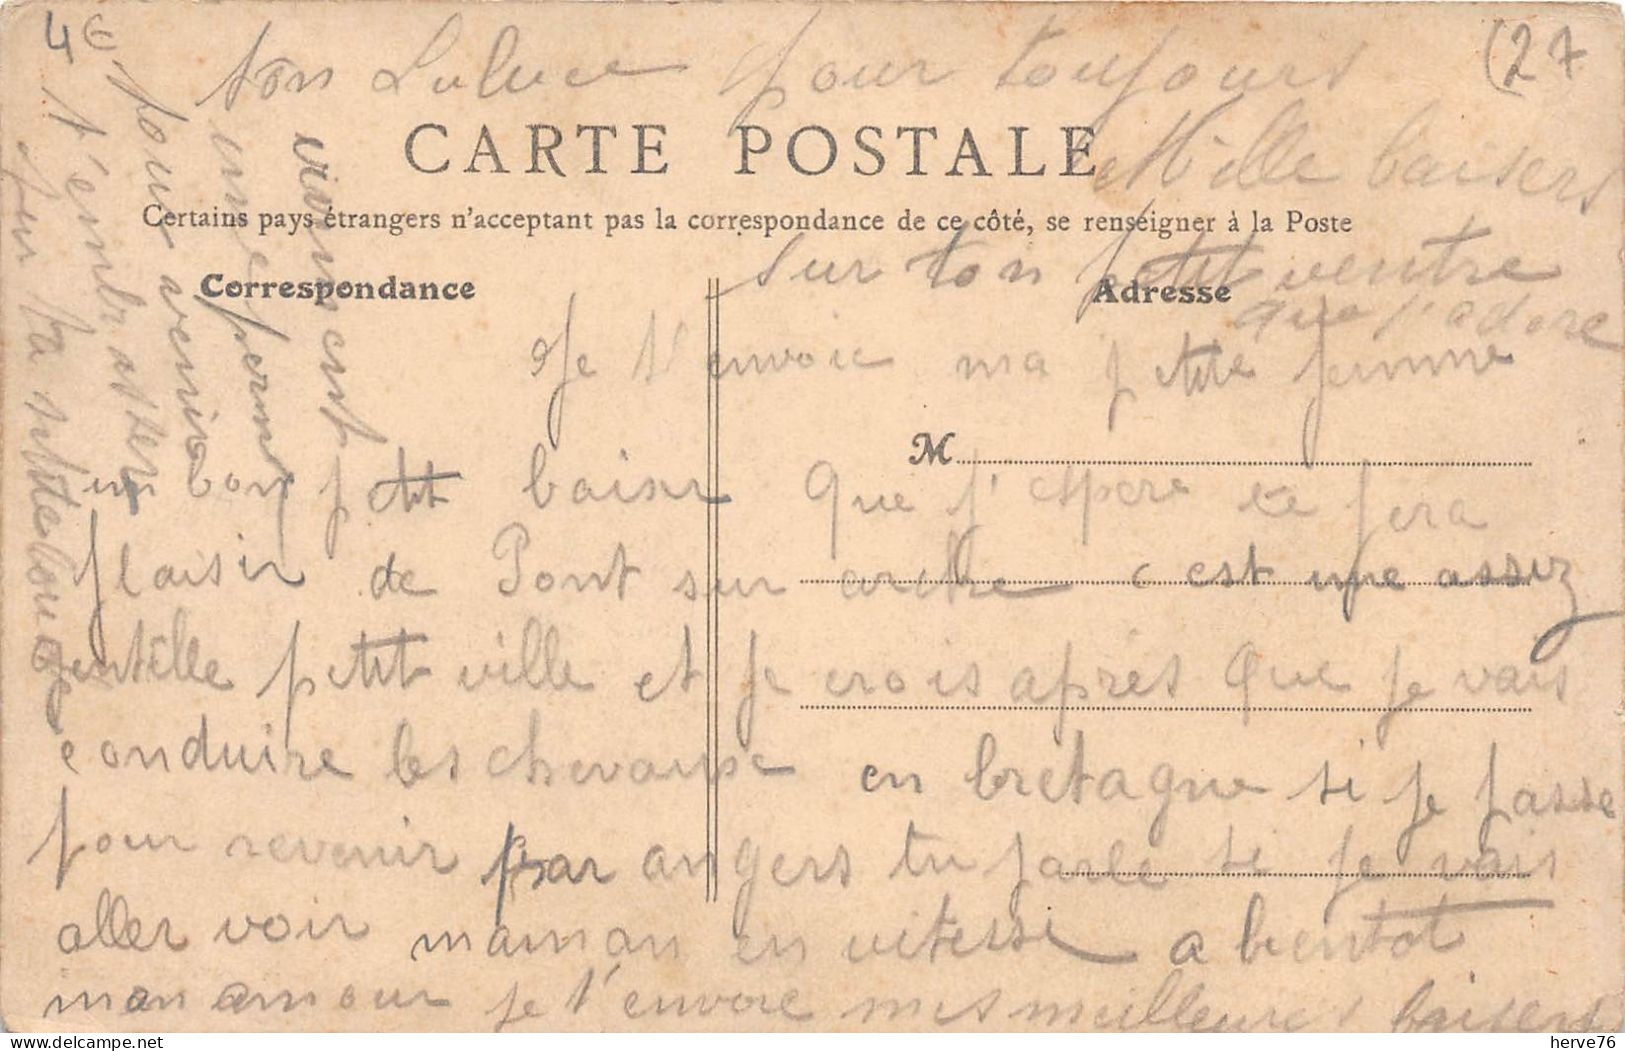 4€
(27
ton Lulu pour toujours
CARTE POSTALE
Mille baisers
Certains pays étrangers n'acceptant pas la correspondance de ce côté, se renseigner à la Poste
sur ton petit ventre
Correspondance
Adresse
que j'adore
Je t'envoie ma petite femme
M
un bon petit baiser que j'espère te fera
plaisir de Pont sur arche c est une assez
gentille petit ville et je crois après que je vais
conduire les chevaux en bretagne si je passe
pour revenir par angers tu parle si je vais
aller voir maman en vitesse a bientot
mon amour je t'envoie mes meilleures baisers
en
t'embrasser
sur ta petite bouche
herve76